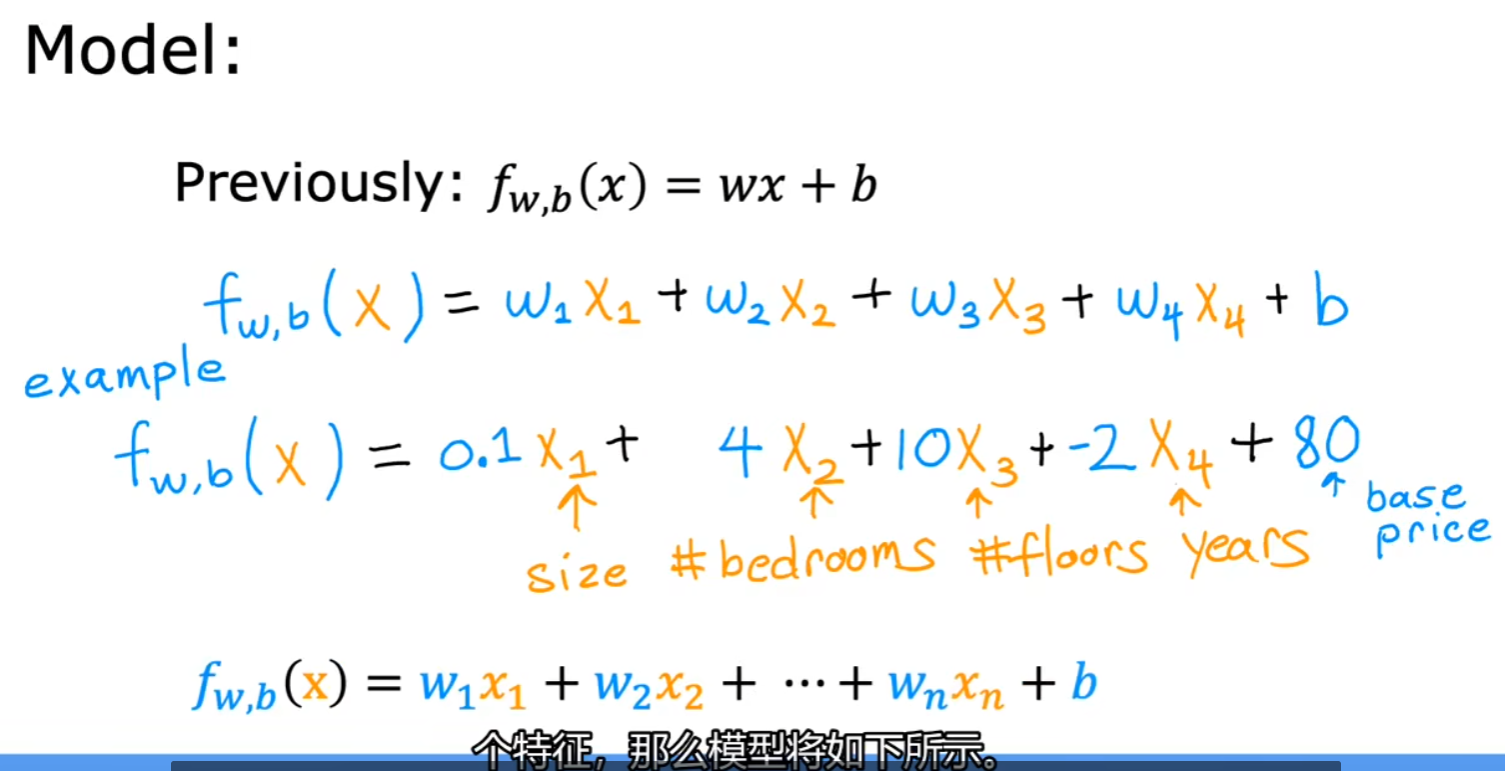 Model:
Previously: f_{w,b}(x) = wx + b
f_{w,b}(x) = w₁x₁ + w₂x₂ + w₃x₃ + w₄x₄ + b
example
f_{w,b}(x) = 0.1x₁ + 4x₂ + 10x₃ + -2x₄ + 80
↑ ↑ ↑ ↑ ↑ base price
size #bedrooms #floors years
f_{w,b}(x) = w₁x₁ + w₂x₂ + ⋯ + wₙxₙ + b
个特征，那么模型将如下所示。